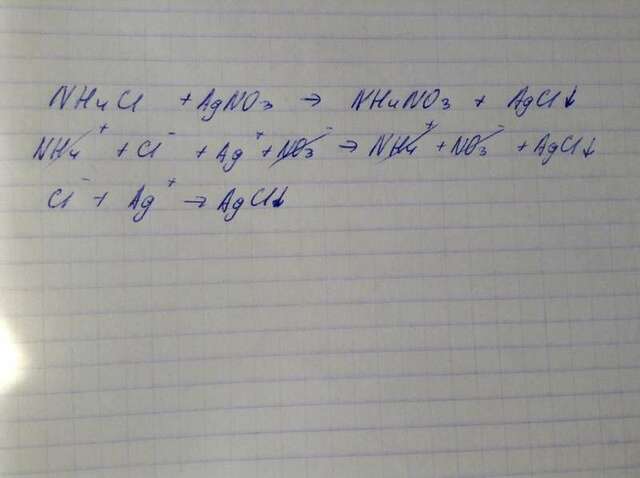 NH4Cl + AgNO3 → NH4NO3 + AgCl↓
NH4⁺ + Cl⁻ + Ag⁺ + NO3⁻ → NH4⁺ + NO3⁻ + AgCl↓
Cl⁻ + Ag⁺ → AgCl↓